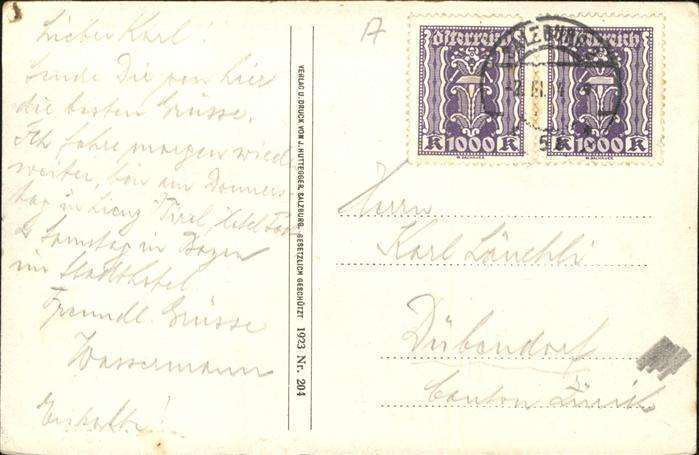 Lieber Karl!
Sende Dir von hier
die besten Grüsse.
Ich fahre morgen wieder
weiter, bin am Donners-
tag in Lienz Tirol, Hotel
Samstag in Bozen
im Stadthotel
Freundl. Grüsse
Wassermann
VERLAG U. DRUCK VON J. HUTTEGGER, SALZBURG. GESETZLICH GESCHÜTZT 1923 Nr. 204
A
Österreich
K 1000 K
Österreich
K 1000 K
SALZBURG
Herrn
Karl
Dübendorf
Canton Zürich